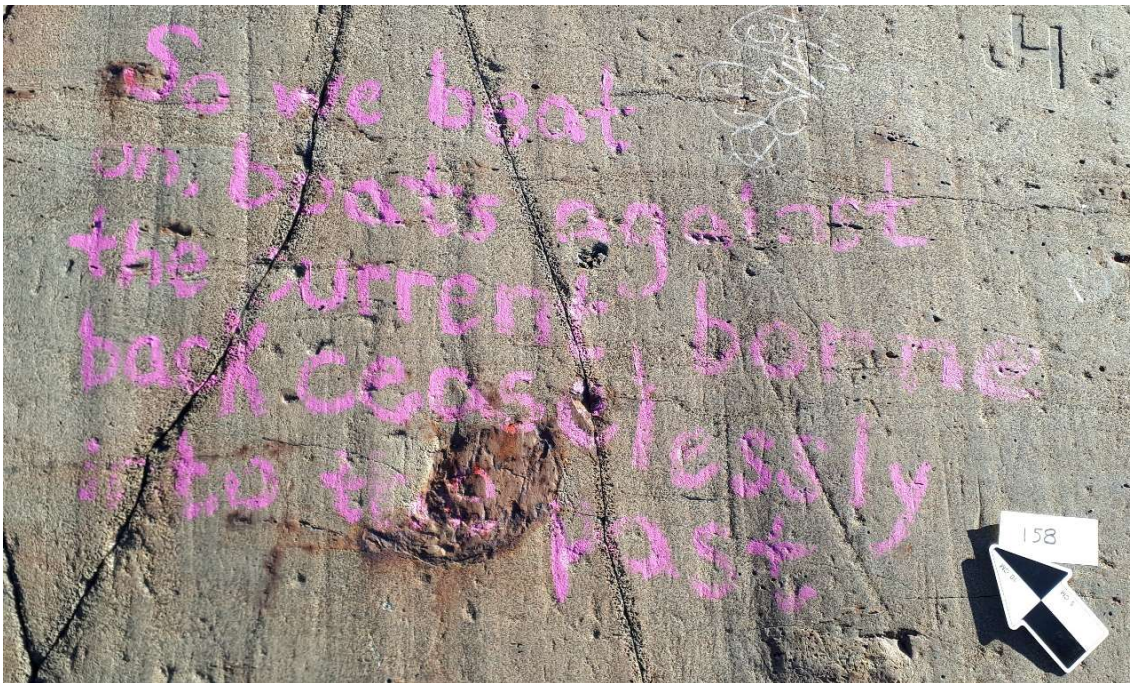 So we beat
on, boats against
the current borne
back ceaselessly
into the past.
J4
158